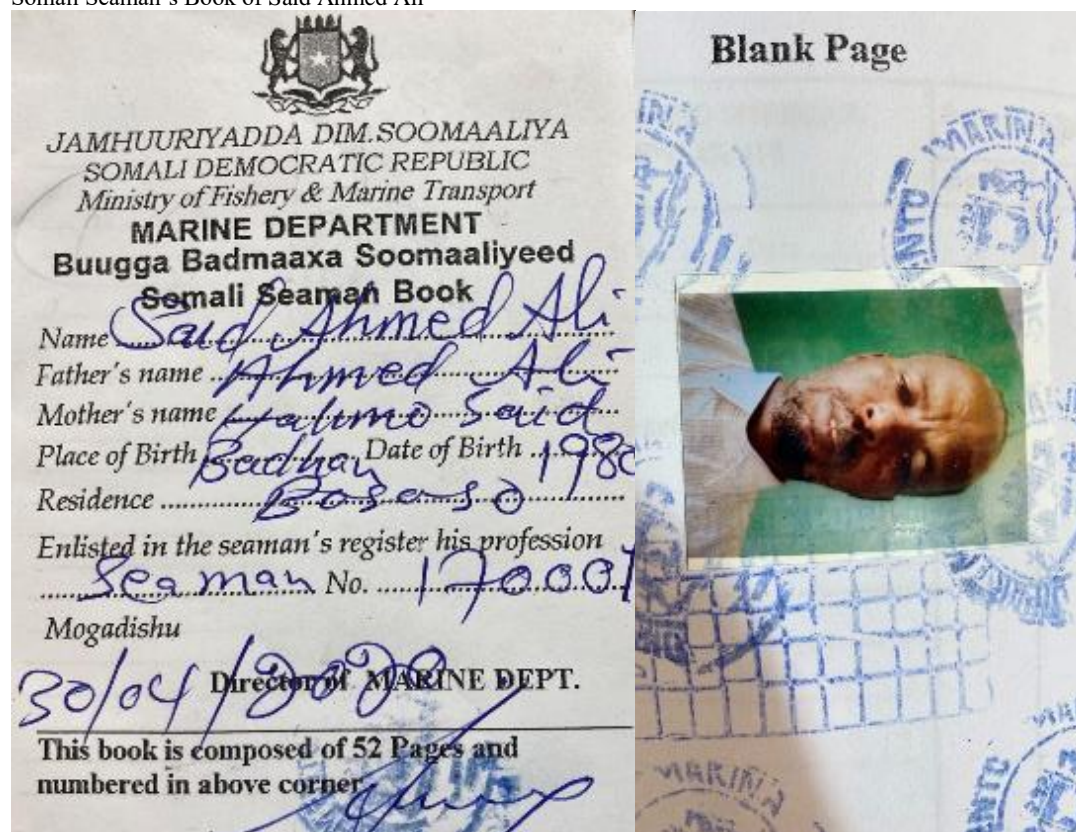 Somali Seaman's Book of Said Ahmed Ali
JAMHUURIYADDA DIM.SOOMAALIYA
SOMALI DEMOCRATIC REPUBLIC
Ministry of Fishery & Marine Transport
MARINE DEPARTMENT
Buugga Badmaaxa Soomaaliyeed
Somali Seaman Book
Name Said Ahmed Ali
Father's name Ahmed Ali
Mother's name Halimo Said
Place of Birth Badhan Date of Birth 1980
Residence Bosaso
Enlisted in the seaman's register his profession
Seaman No. 170001
Mogadishu
30/04/2020 Director of MARINE DEPT.
This book is composed of 52 Pages and
numbered in above corner
Blank Page
MARINA
MARINA
MARINA